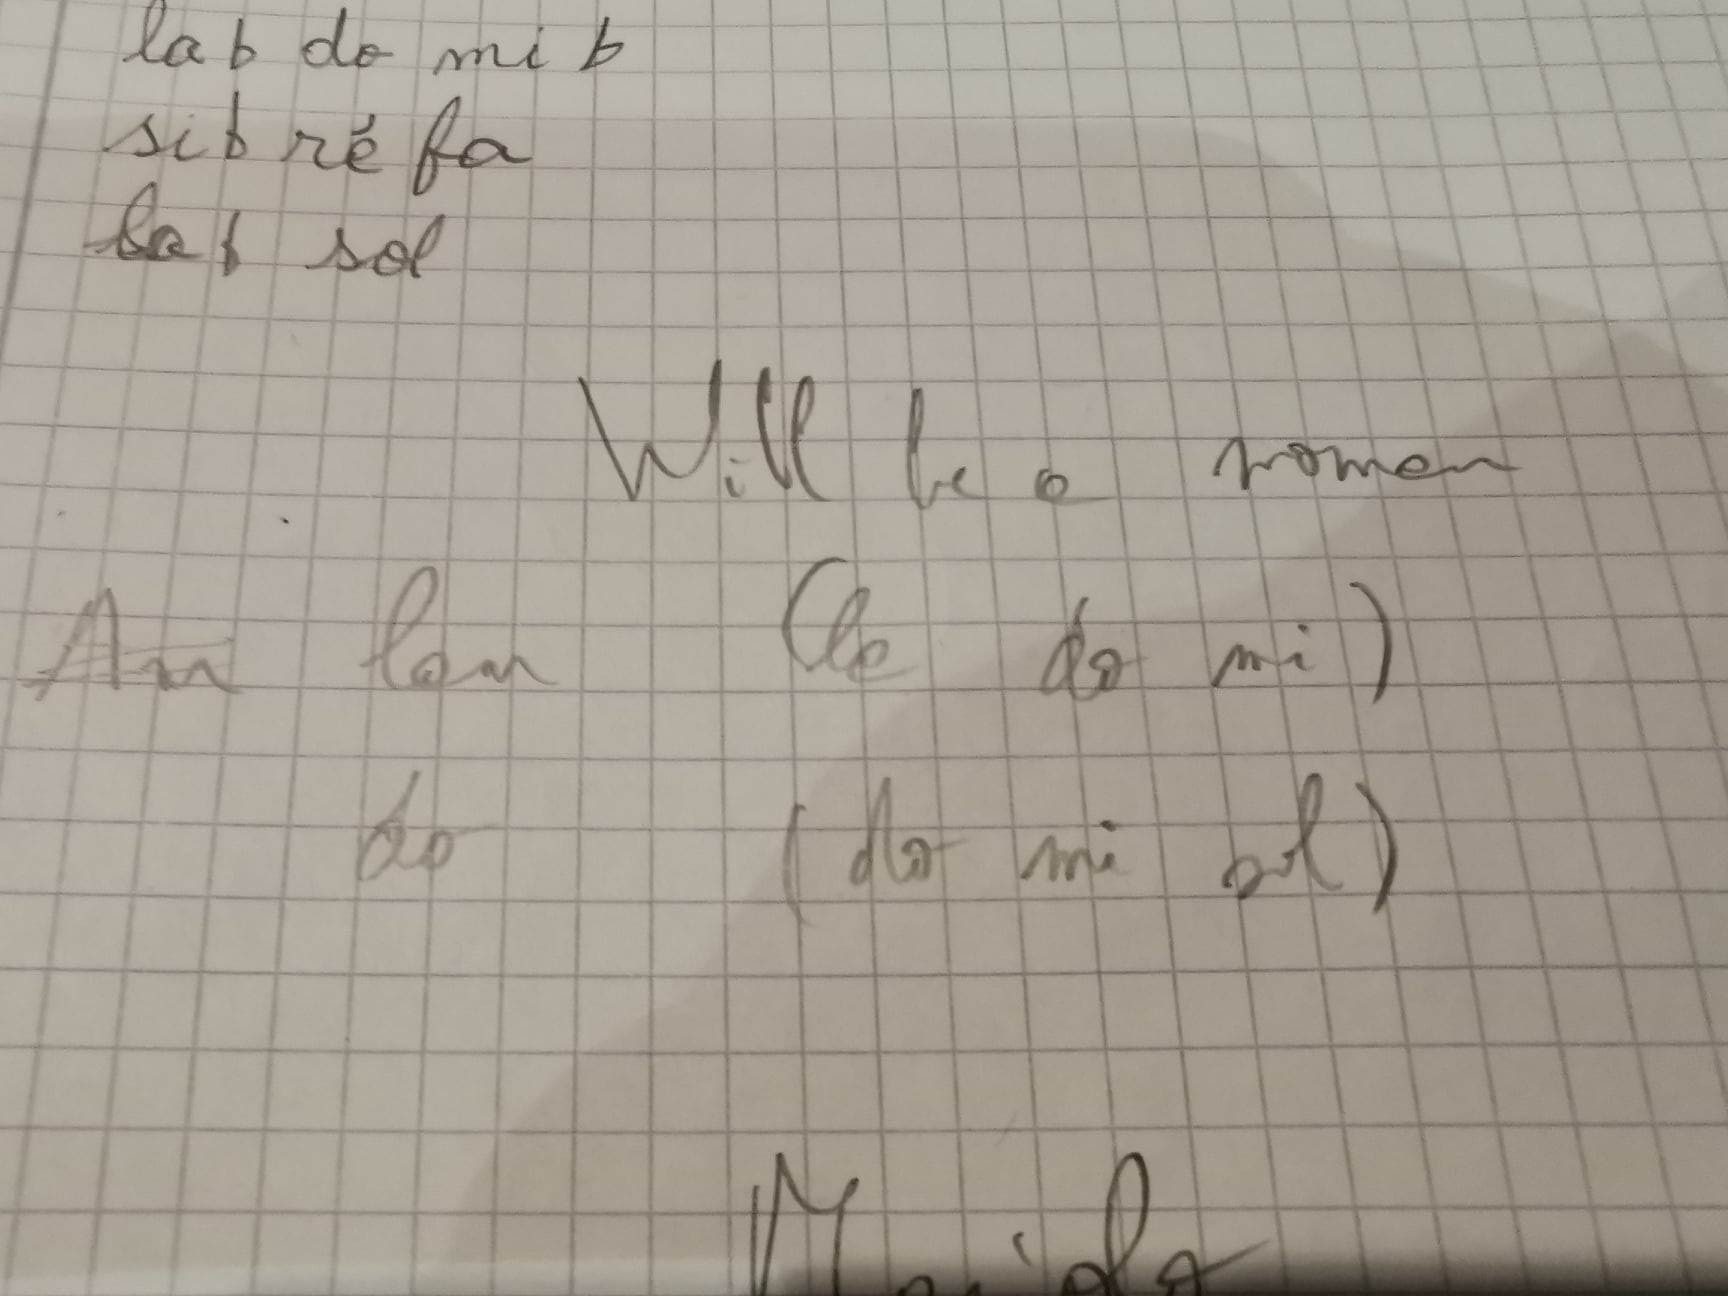 la b do mi b
si b ré fa
la b sol
Will be a women
Am lam (la do mi)
do (do mi sol)